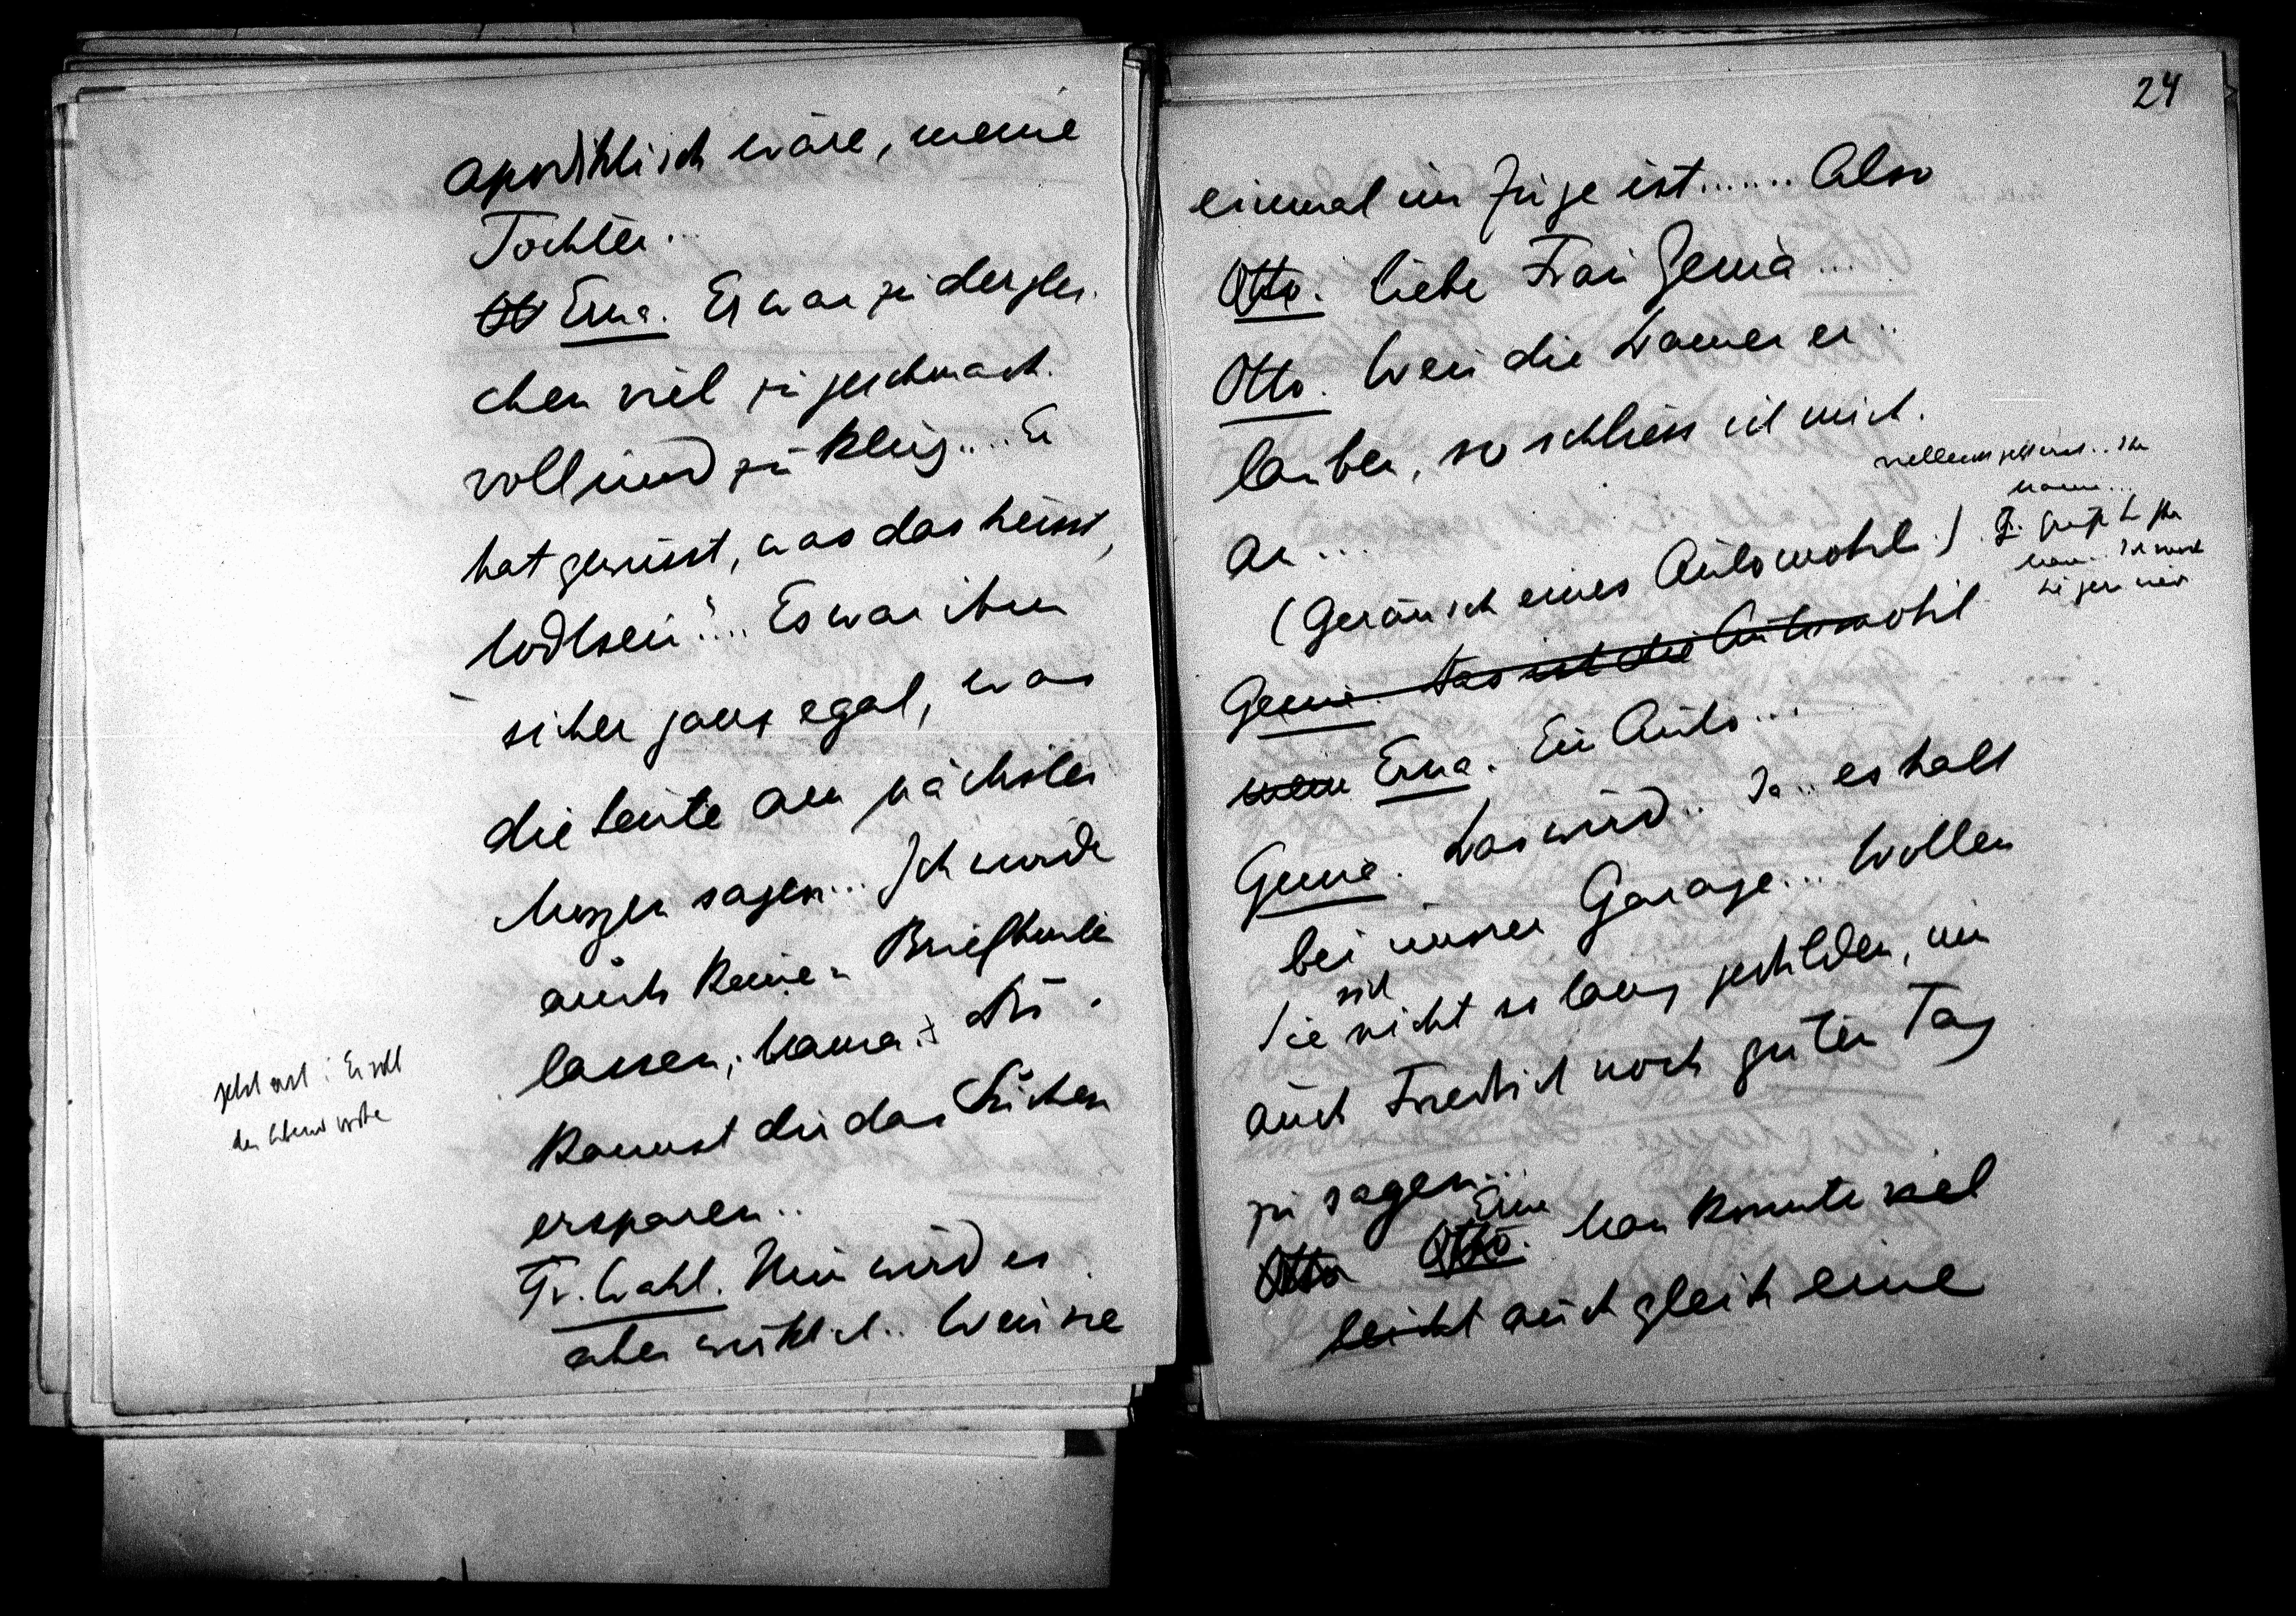 apodiktisch wäre, meine
Tochter..
Erna. Er war zu derglei-
chen viel zu geschmack-
voll und zu klug.... Er
hat gewusst, was das heisst,
todtsein!... Es war ihm
sicher ganz egal, was
die Leute am nächsten
Morgen sagen... Ich würde
auch keinen Brief hinter
lassen, Mama. Du
kannst dir das Suchen
ersparen..
Fr. Wahl. Nun wird es
aber wirklich.. Wenn sie
24
einmal im Zuge ist....... Also
Otto. Liebe Frau Genia...
Otto. Wenn die Damen er-
lauben, so schliess ich mich
an...
(Geräusch eines Automobil.)
Genia. Das ist die Automobil
Erna. Ein Auto...
Genia. Das wird.. Ja.. es hält
bei unsrer Garage... Wollen
sich
Sie nicht so lang gedulden, um
auch Friedrich noch guten Tag
zu sagen...
Erna
Otto Otto. Man könnte viel
leicht auch gleich eine